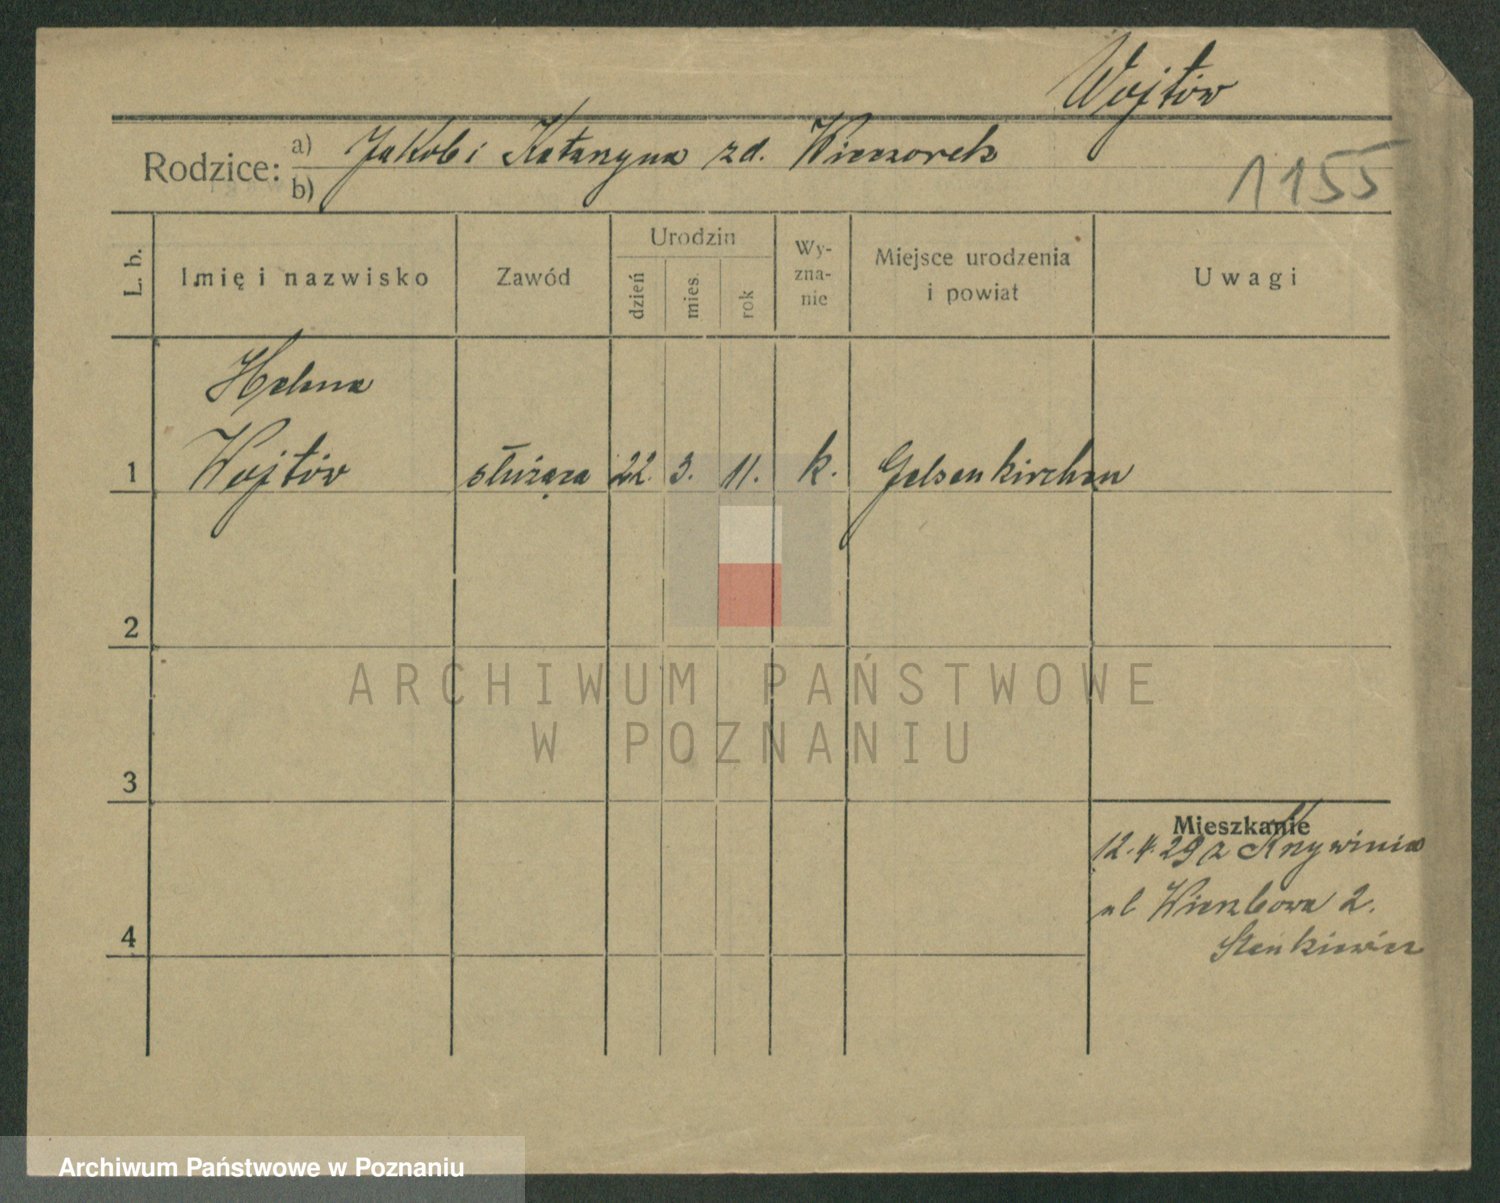 Wojtów
Rodzice: a) Jakob i Katarzyna zd. Wieczorek
b)
1155
L. b.
Imię i nazwisko
Zawód
Urodzin
dzień
mies.
rok
Wy-
zna-
nie
Miejsce urodzenia
i powiat
Uwagi
Helena
1 Wojtów służąca 22. 3. 11. k. Gelsenkirchen
2
ARCHIWUM PAŃSTWOWE
W POZNANIU
3
Mieszkanie
12.4.29 z Krzywinia
ul Wierzbowa 2.
4
Archiwum Państwowe w Poznaniu